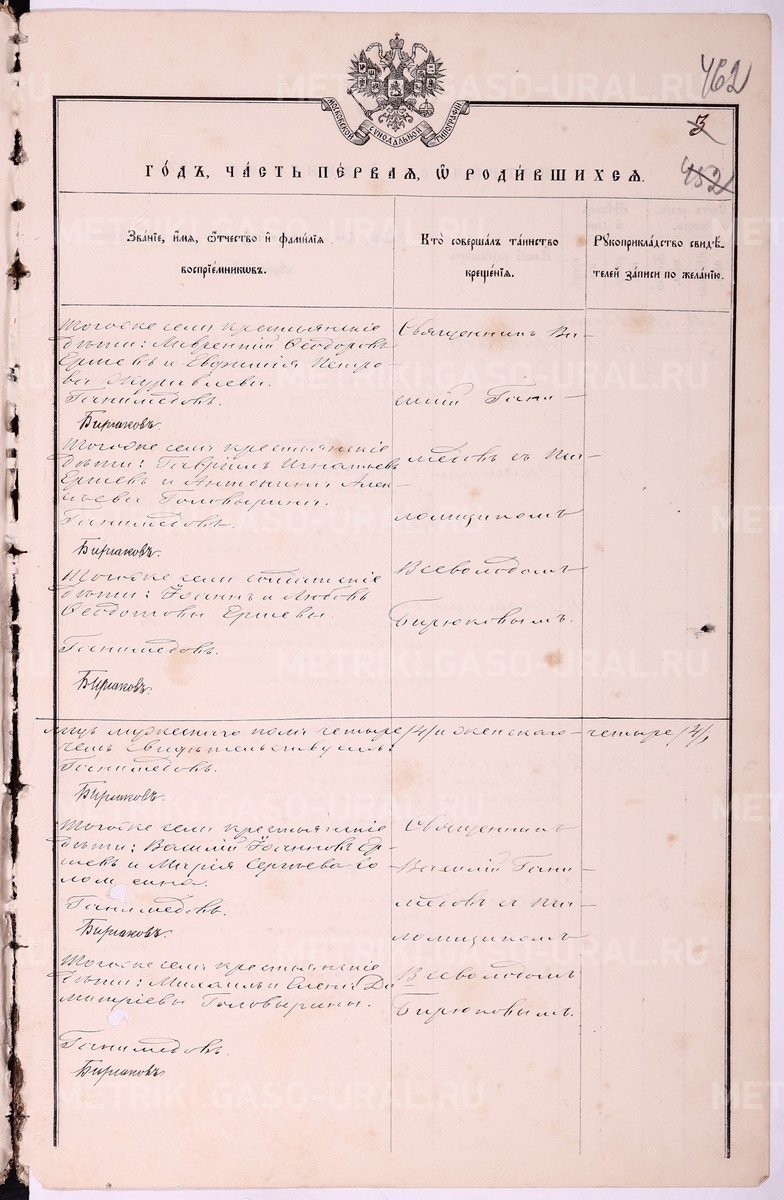 462
МОСКОВСКОЙ СѴНОДАЛЬНОЙ ТИПОГРАФІИ
3
452
ГОДЪ, ЧАСТЬ ПЕРВАЯ, Ѡ РОДИВШИХСЯ.
Званіе, имя, отчество и фамилія воспріемниковъ.
Кто совершалъ таинство крещенія.
Рукоприкладство свидѣтелей записи по желанію.
Тогоже села крестьянскіе
дѣти: Лаврентій Ѳеодоровъ
Ершевъ и Евфимія Петро
ва Журавлева.
Ганимедовъ.
Бирюковъ
Тогоже села крестьянскіе
дѣти: Гавріилъ Игнатьевъ
Ершевъ и Антонина Алек
сѣева Головырина.
Ганимедовъ.
Бирюковъ.
Тогоже села солдатскіе
дѣти: Іоаннъ и Любовь
Ѳеодотовы Ершевы.
Ганимедовъ.
Бирюковъ.
Священникъ Ва-
силій Гани-
медовъ съ Пса-
ломщикомъ
Всеволодомъ
Бирюковымъ.
лицъ мужескаго пола четыре /4/ и женскаго четыре /4/,
чемъ свидѣтельствуемъ:
Ганимедовъ.
Бирюковъ.
Тогоже села крестьянскіе
дѣти: Василій Іоанновъ Ер-
шевъ и Марія Сергѣева Со
ломеина.
Ганимедовъ.
Бирюковъ.
Тогоже села крестьянскіе
дѣти: Михаилъ и Елена Ди
митріевы Головырины.
Ганимедовъ.
Бирюковъ.
Священникъ
Василій Гани-
медовъ съ Пса-
ломщикомъ
Всеволодомъ
Бирюковымъ.
METRIKI.GASO-URAL.RU